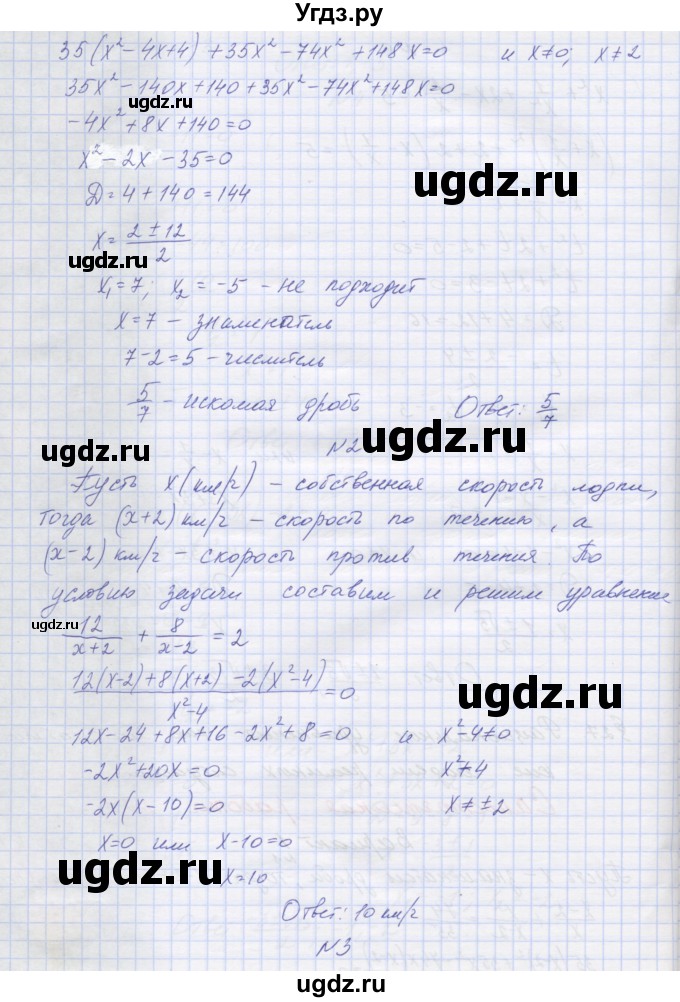 Угдз.ру
35(x² - 4x + 4) + 35x² - 74x² + 148x = 0 и x ≠ 0; x ≠ 2
35x² - 140x + 140 + 35x² - 74x² + 148x = 0
ugdz.ru
ugdz.ru
-4x² + 8x + 140 = 0
x² - 2x - 35 = 0
D = 4 + 140 = 144
ugdz.ru
x = (2 ± 12)/2
ugdz.ru
x₁ = 7; x₂ = -5 - не подходит
x = 7 - знаменатель
7 - 2 = 5 - числитель
ugdz.ru
5/7 - искомая дробь Ответ: 5/7
ugdz.ru
N2
ugdz.ru
Пусть x (км/ч) - собственная скорость лодки,
тогда (x+2) км/ч - скорость по течению, а
(x-2) км/ч - скорость против течения. По
условию задачи составим и решим уравнение
ugdz.ru
12/(x+2) + 8/(x-2) = 2
(12(x-2) + 8(x+2) - 2(x²-4))/(x²-4) = 0
ugdz.ru
12x - 24 + 8x + 16 - 2x² + 8 = 0 и x² - 4 ≠ 0
-2x² + 20x = 0 x² ≠ 4
-2x(x - 10) = 0 x ≠ ±2
ugdz.ru
x = 0 или x - 10 = 0
ugdz.ru
x = 10
Ответ: 10 км/ч
N3
ugdz.ru